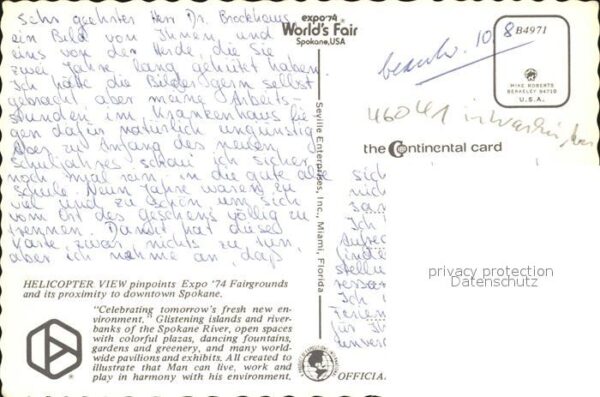 Sehr geehrter Herr Dr. Brockhaus,
ein Bild von Ihnen, und
eins von der Herde, die Sie
zwei Jahre lang gehütet haben.
Ich hätte die Bilder gern selbst
gebracht aber meine Arbeits-
stunden im Krankenhaus lie
gen dafür natürlich ungünstig
Aber zu Anfang des neuen
Schuljahres schau ich sicher
noch mal rein, in die gute alte
Schule. Neun Jahre waren zu
viel und zu schön um sich
vom Ort des geschehens völlig zu
trennen. Damit hat diese
Karte zwar nichts zu tun,
aber ich nehme an, daß
HELICOPTER VIEW pinpoints Expo '74 Fairgrounds
and its proximity to downtown Spokane.
"Celebrating tomorrow's fresh new en-
vironment." Glistening islands and river-
banks of the Spokane River, open spaces
with colorful plazas, dancing fountains,
gardens and greenery, and many world-
wide pavilions and exhibits. All created to
illustrate that Man can live, work and
play in harmony with his environment.
expo '74
World's Fair
Spokane, USA
Seville Enterprises, Inc., Miami, Florida
10. 8
B4971
MIKE ROBERTS
BERKELEY 94710
U.S.A.
46041
the Continental card
sich
nich
Ich
stellu
ressa
Ich
Ferien
für Ih
privacy protection
Datenschutz
OFFICIA